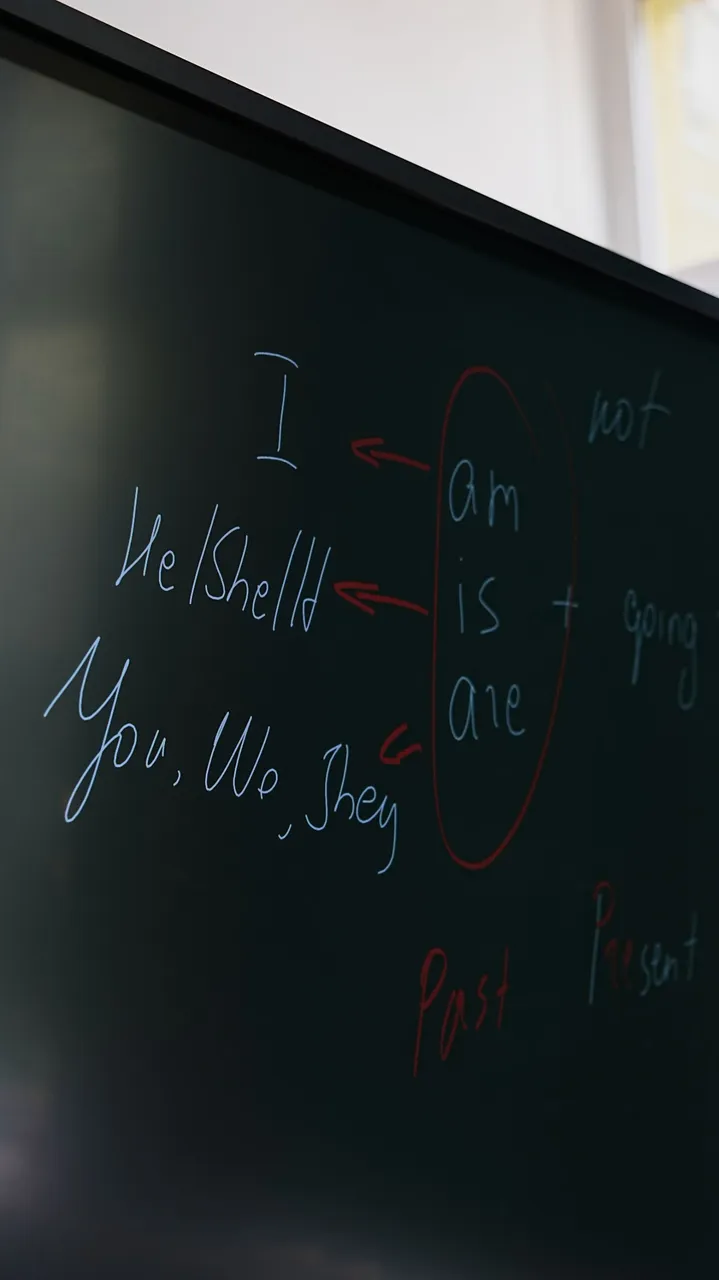 I am not
He/She/It is + going
You, We, They are
Past Present